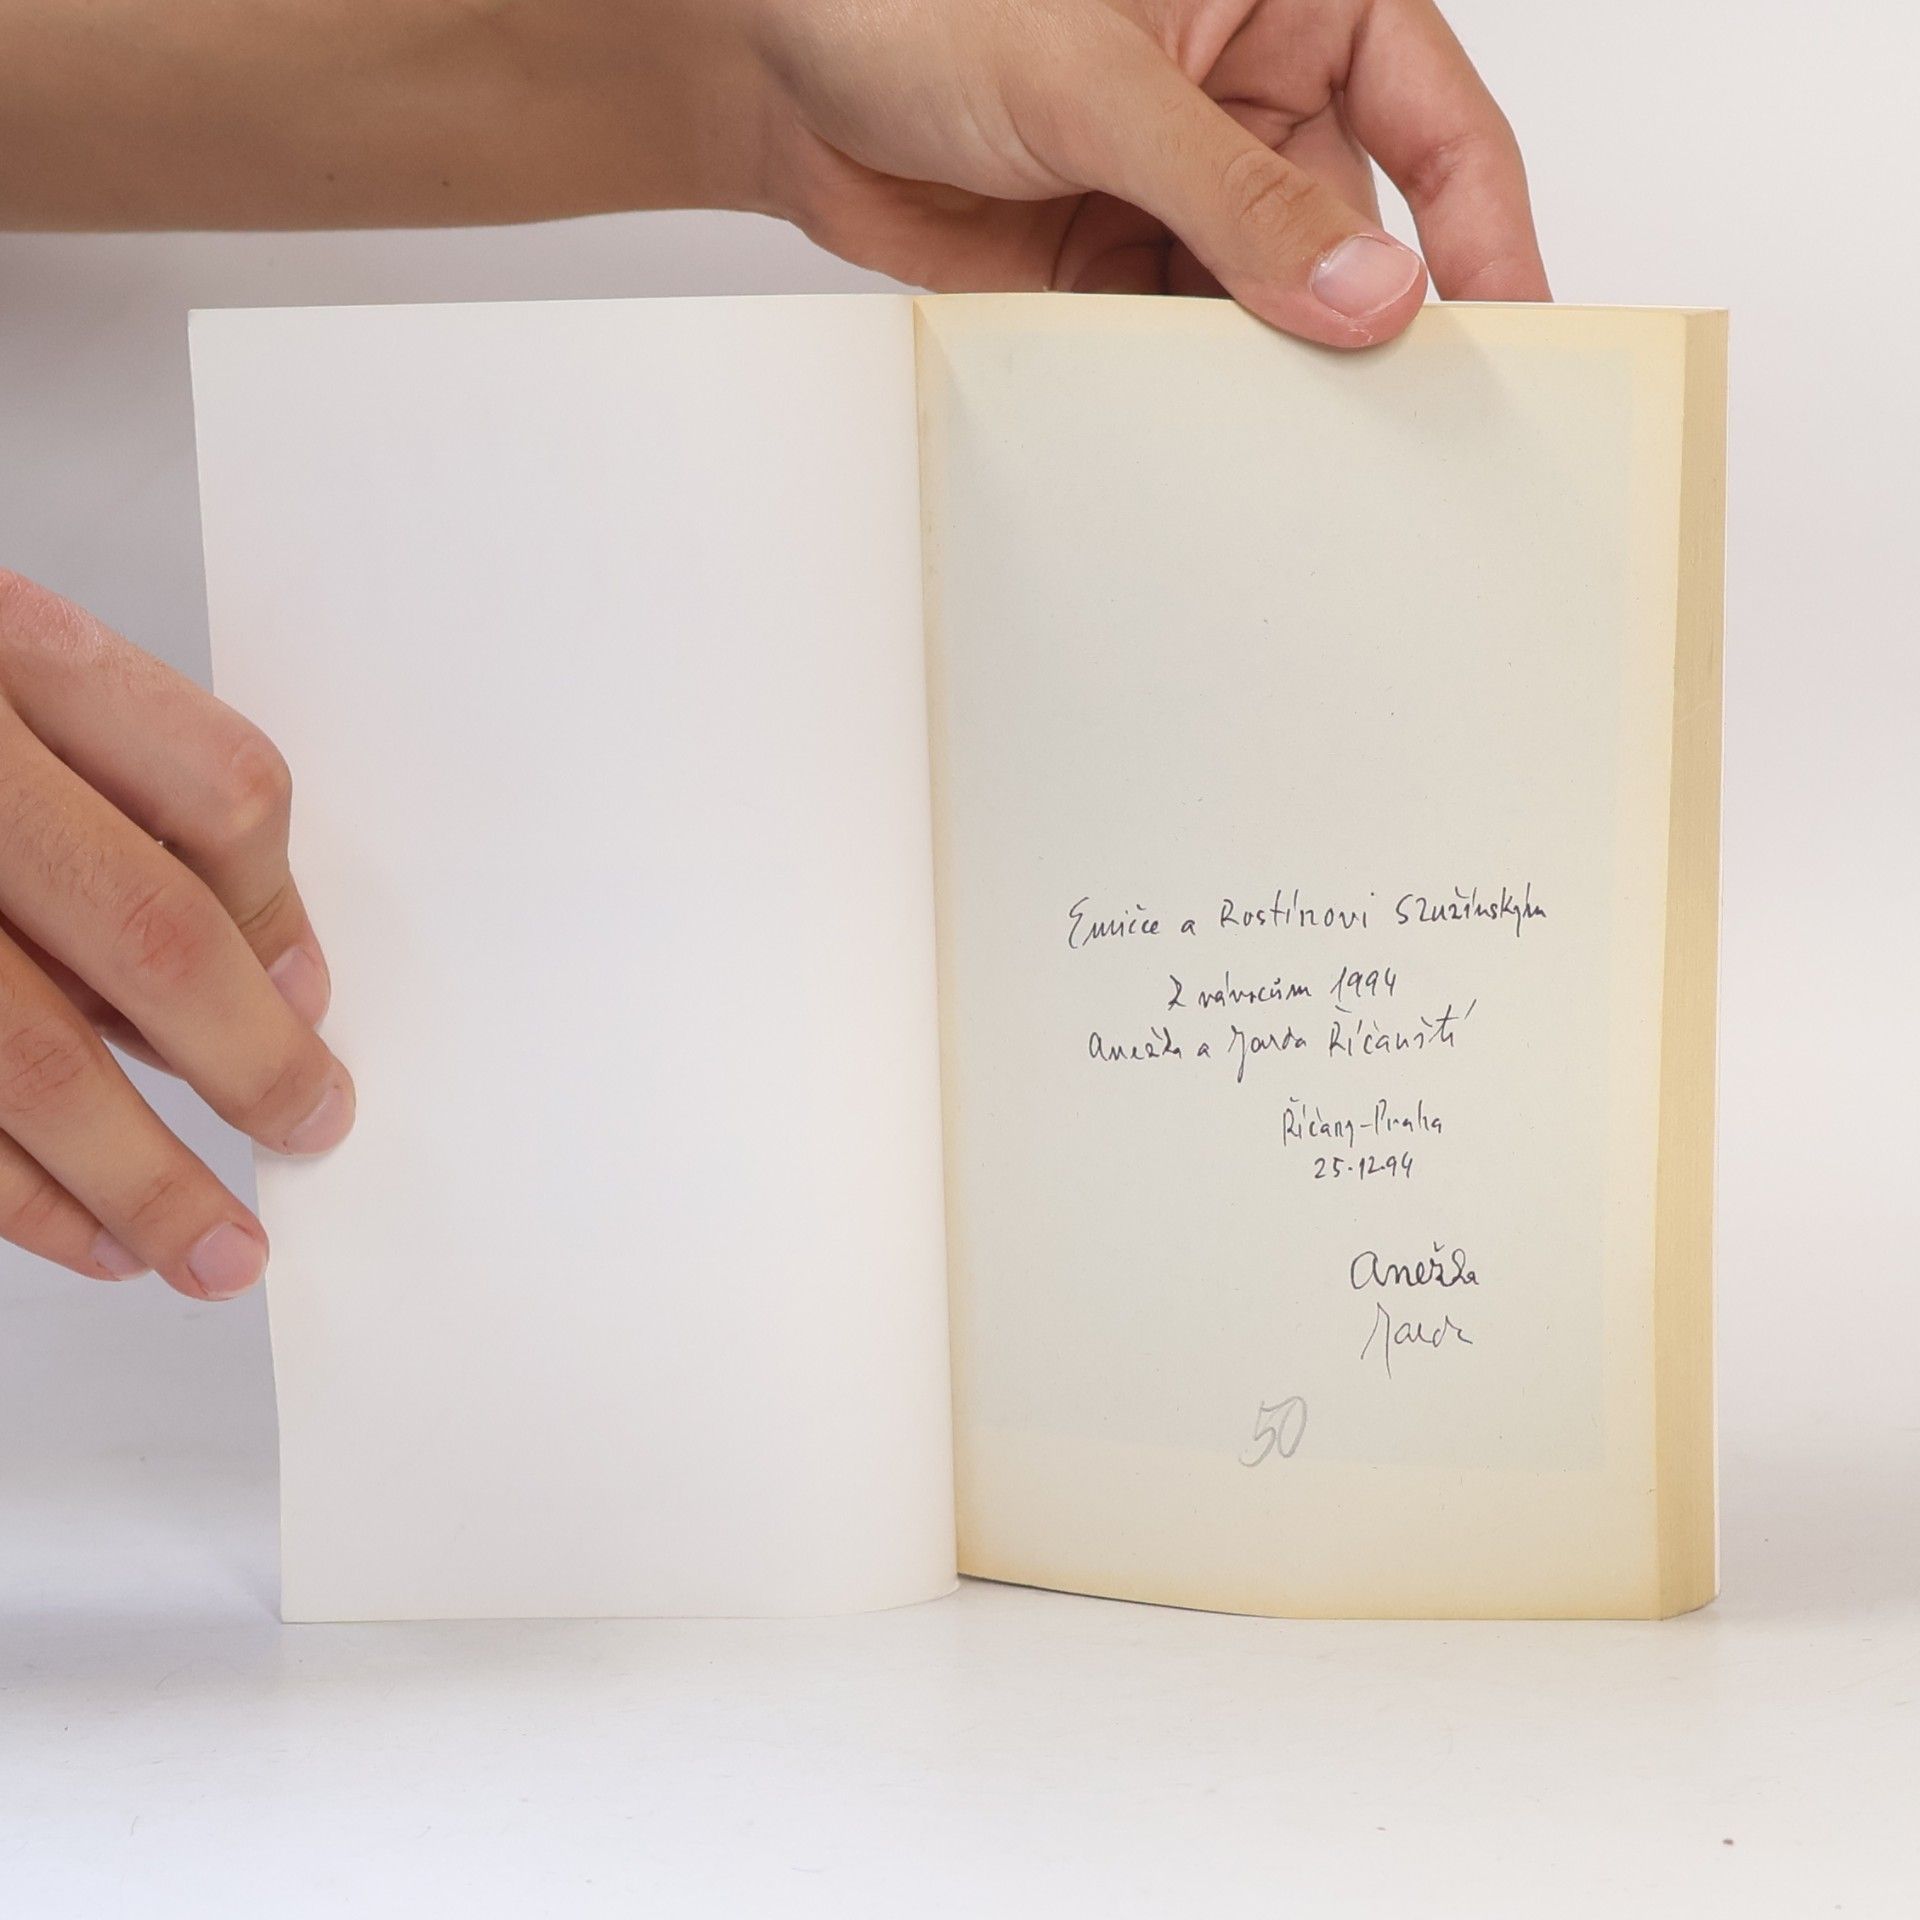 Emičce a Rostínovi Služínským
K vánocům 1994
Anežka a Jarda Říčanští
Říčany-Praha
25.12.94
Anežka
Jarda
50